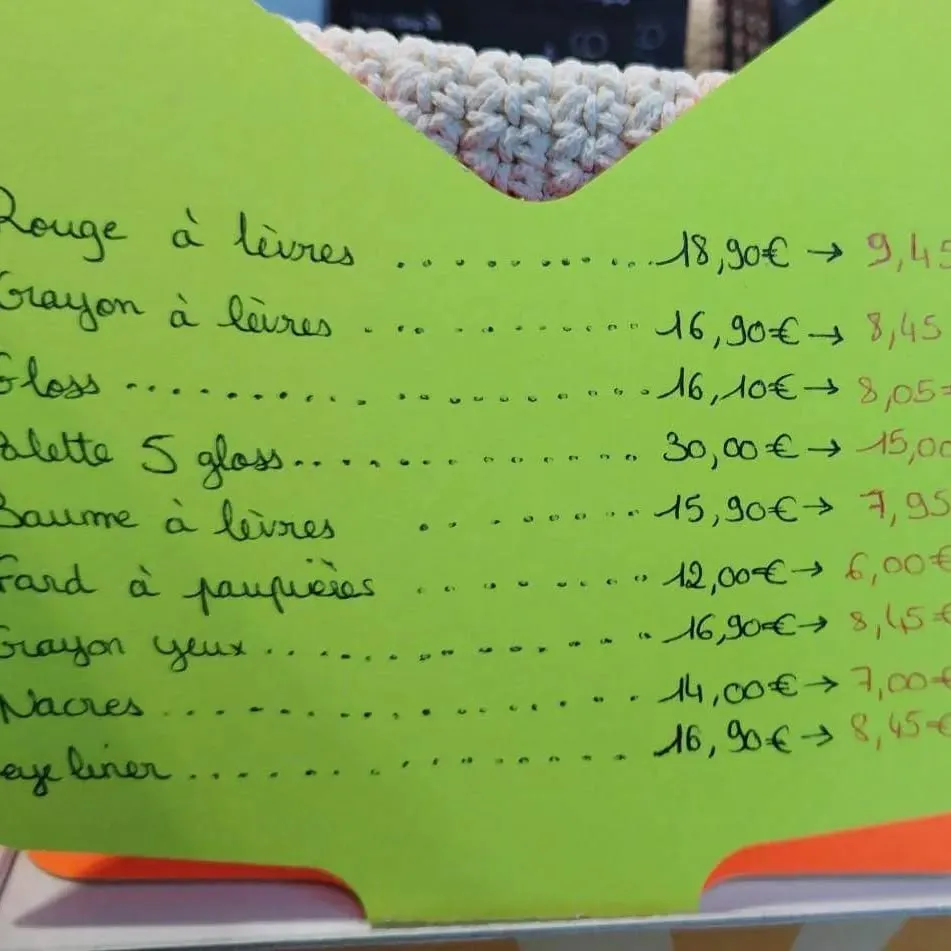 Rouge à lèvres ............. 18,90€ → 9,45
Crayon à lèvres ............ 16,90€ → 8,45
Gloss ...................... 16,10€ → 8,05€
Palette 5 gloss ............ 30,00€ → 15,00
Baume à lèvres ......... 15,90€ → 7,95
Fard à paupières ......... 12,00€ → 6,00€
Crayon yeux ................ 16,90€ → 8,45€
Nacres ................... 14,00€ → 7,00€
eye liner .................. 16,90€ → 8,45€